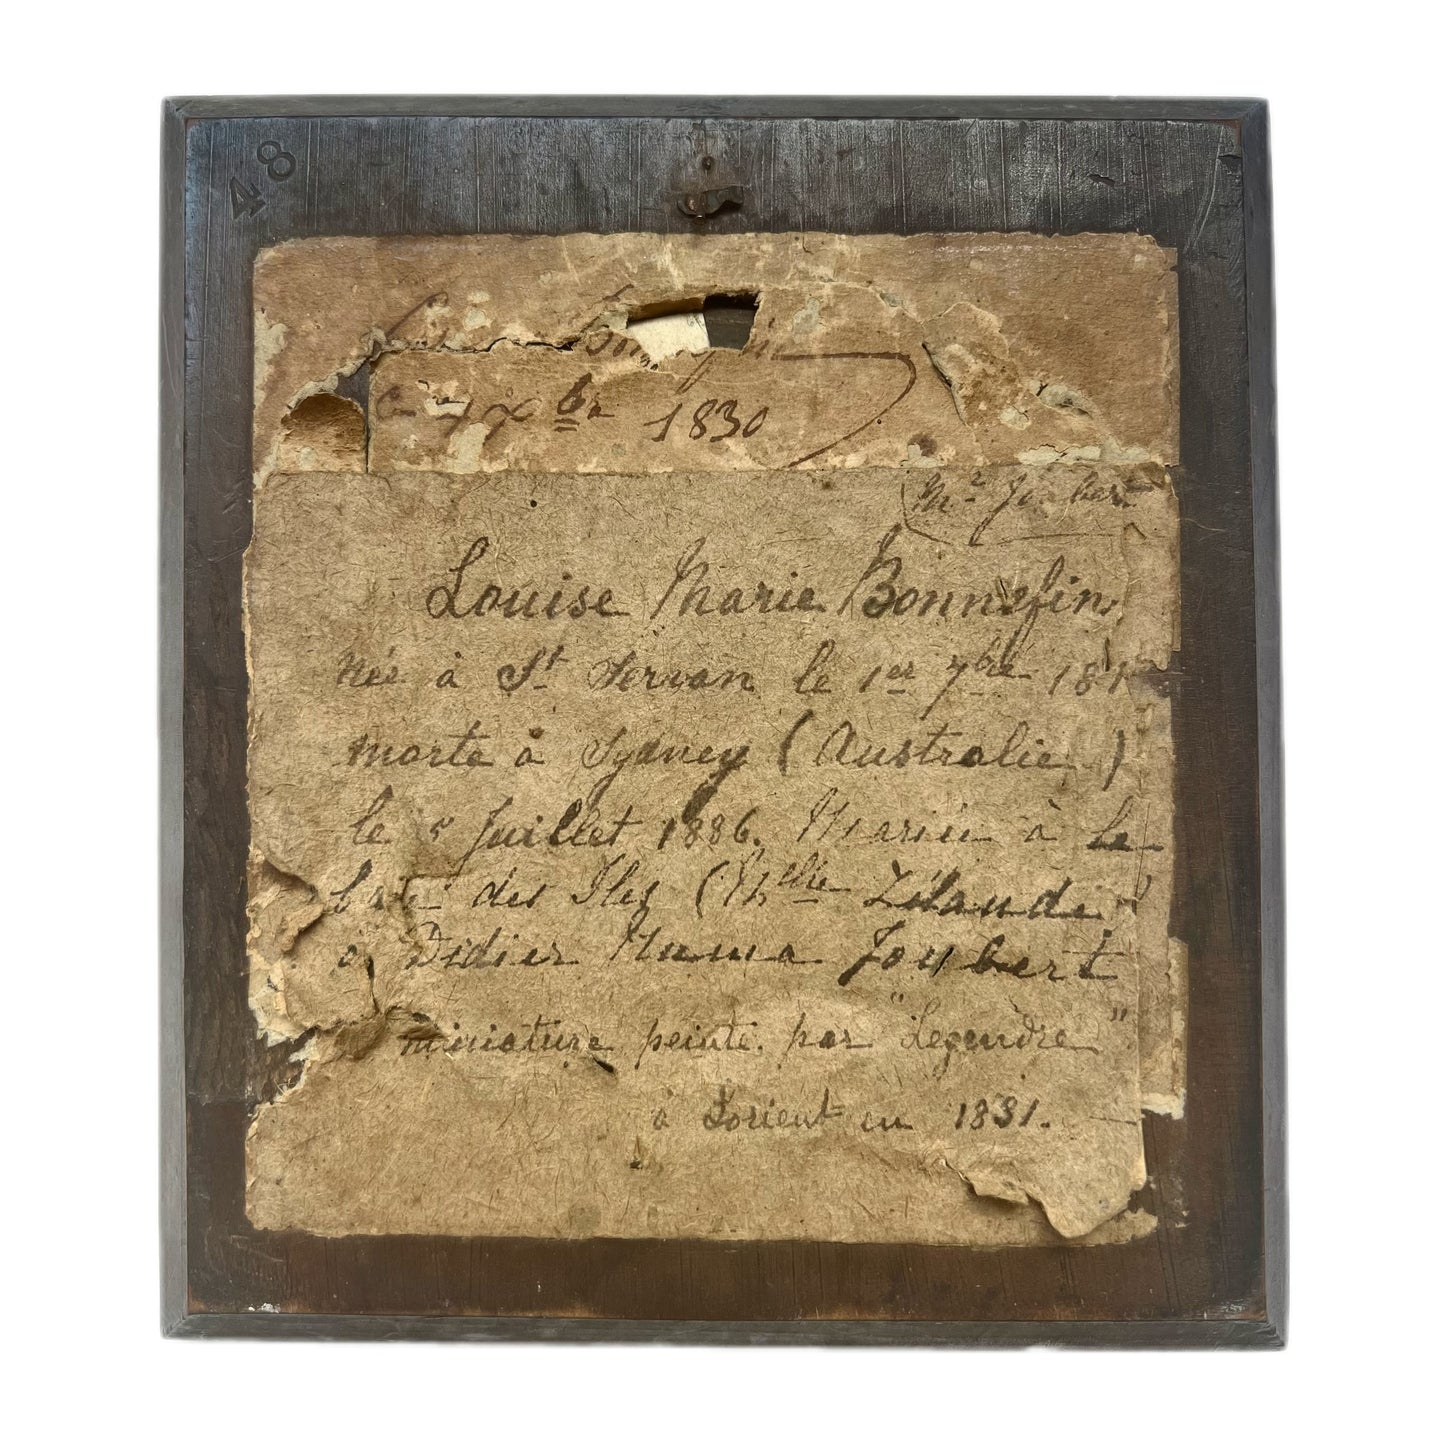 48
1830
Mr Joubert
Louise Marie Bonnefin
née à St Servan le 1er 7bre 181
morte à Sydney (Australie)
le 5 Juillet 1886. Mariée à la
baie des Iles (Nlle Zélande)
à Didier Numa Joubert
miniature peinte par "Legendre"
à Lorient en 1831.